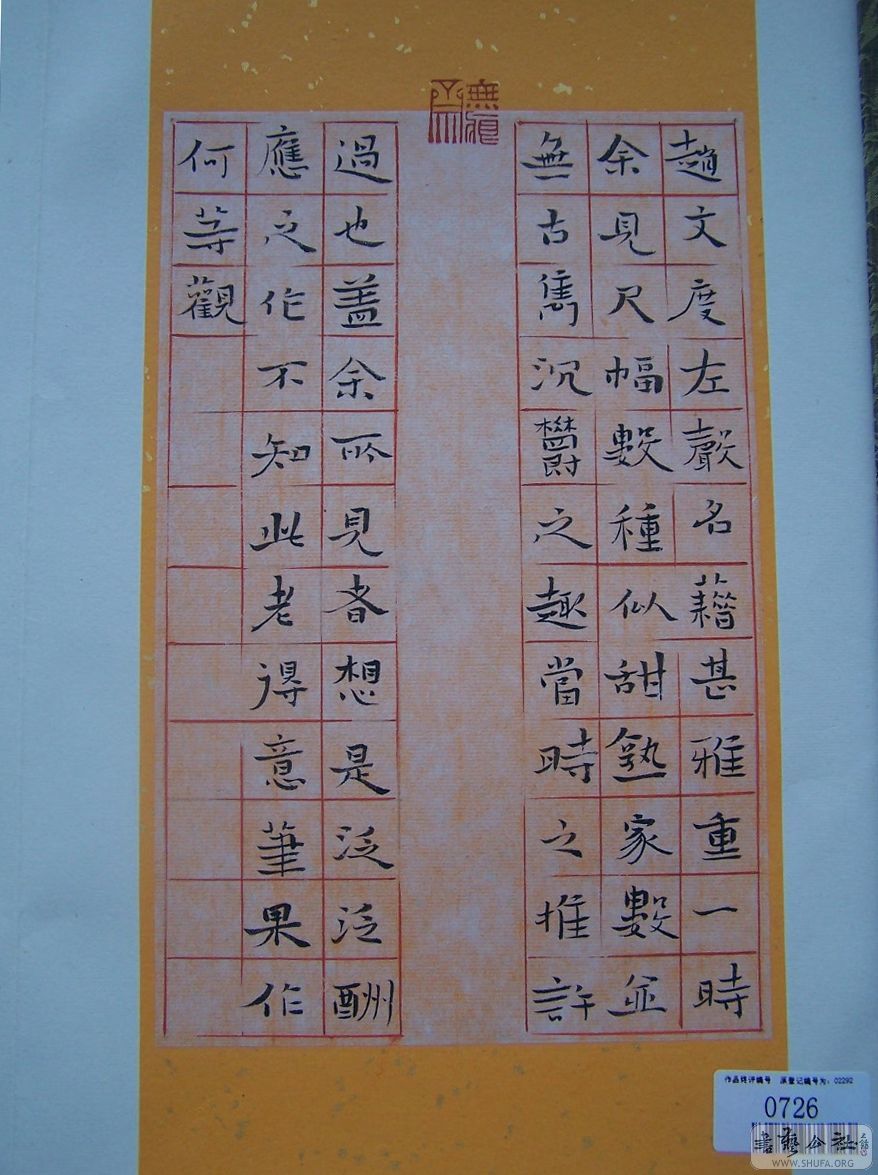 趙文度左聲名藉甚雅重一時
余見尺幅數種似甜熟家數並
無古雋沉欝之趣當時之推許
過也盖余所見者想是泛泛酬
應之作不知此老得意筆果作
何等觀
作品终评编号 原登记编号为：02292
0726
書藝公社
WWW.SHUFA.ORG